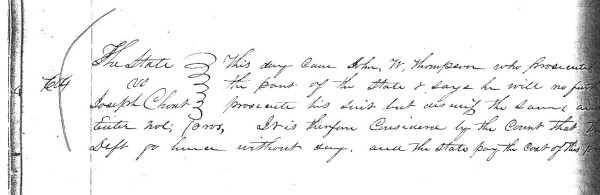 The State This day came John, W, Thompson who prosecutes
vs the part of the State & says he will no fur
Joseph Chout prosecute his suit but dismiss the same an
Enter nol; pros, It is therfore Considered by the Court that
Deft go hence without day. and the State pay the Cost of this